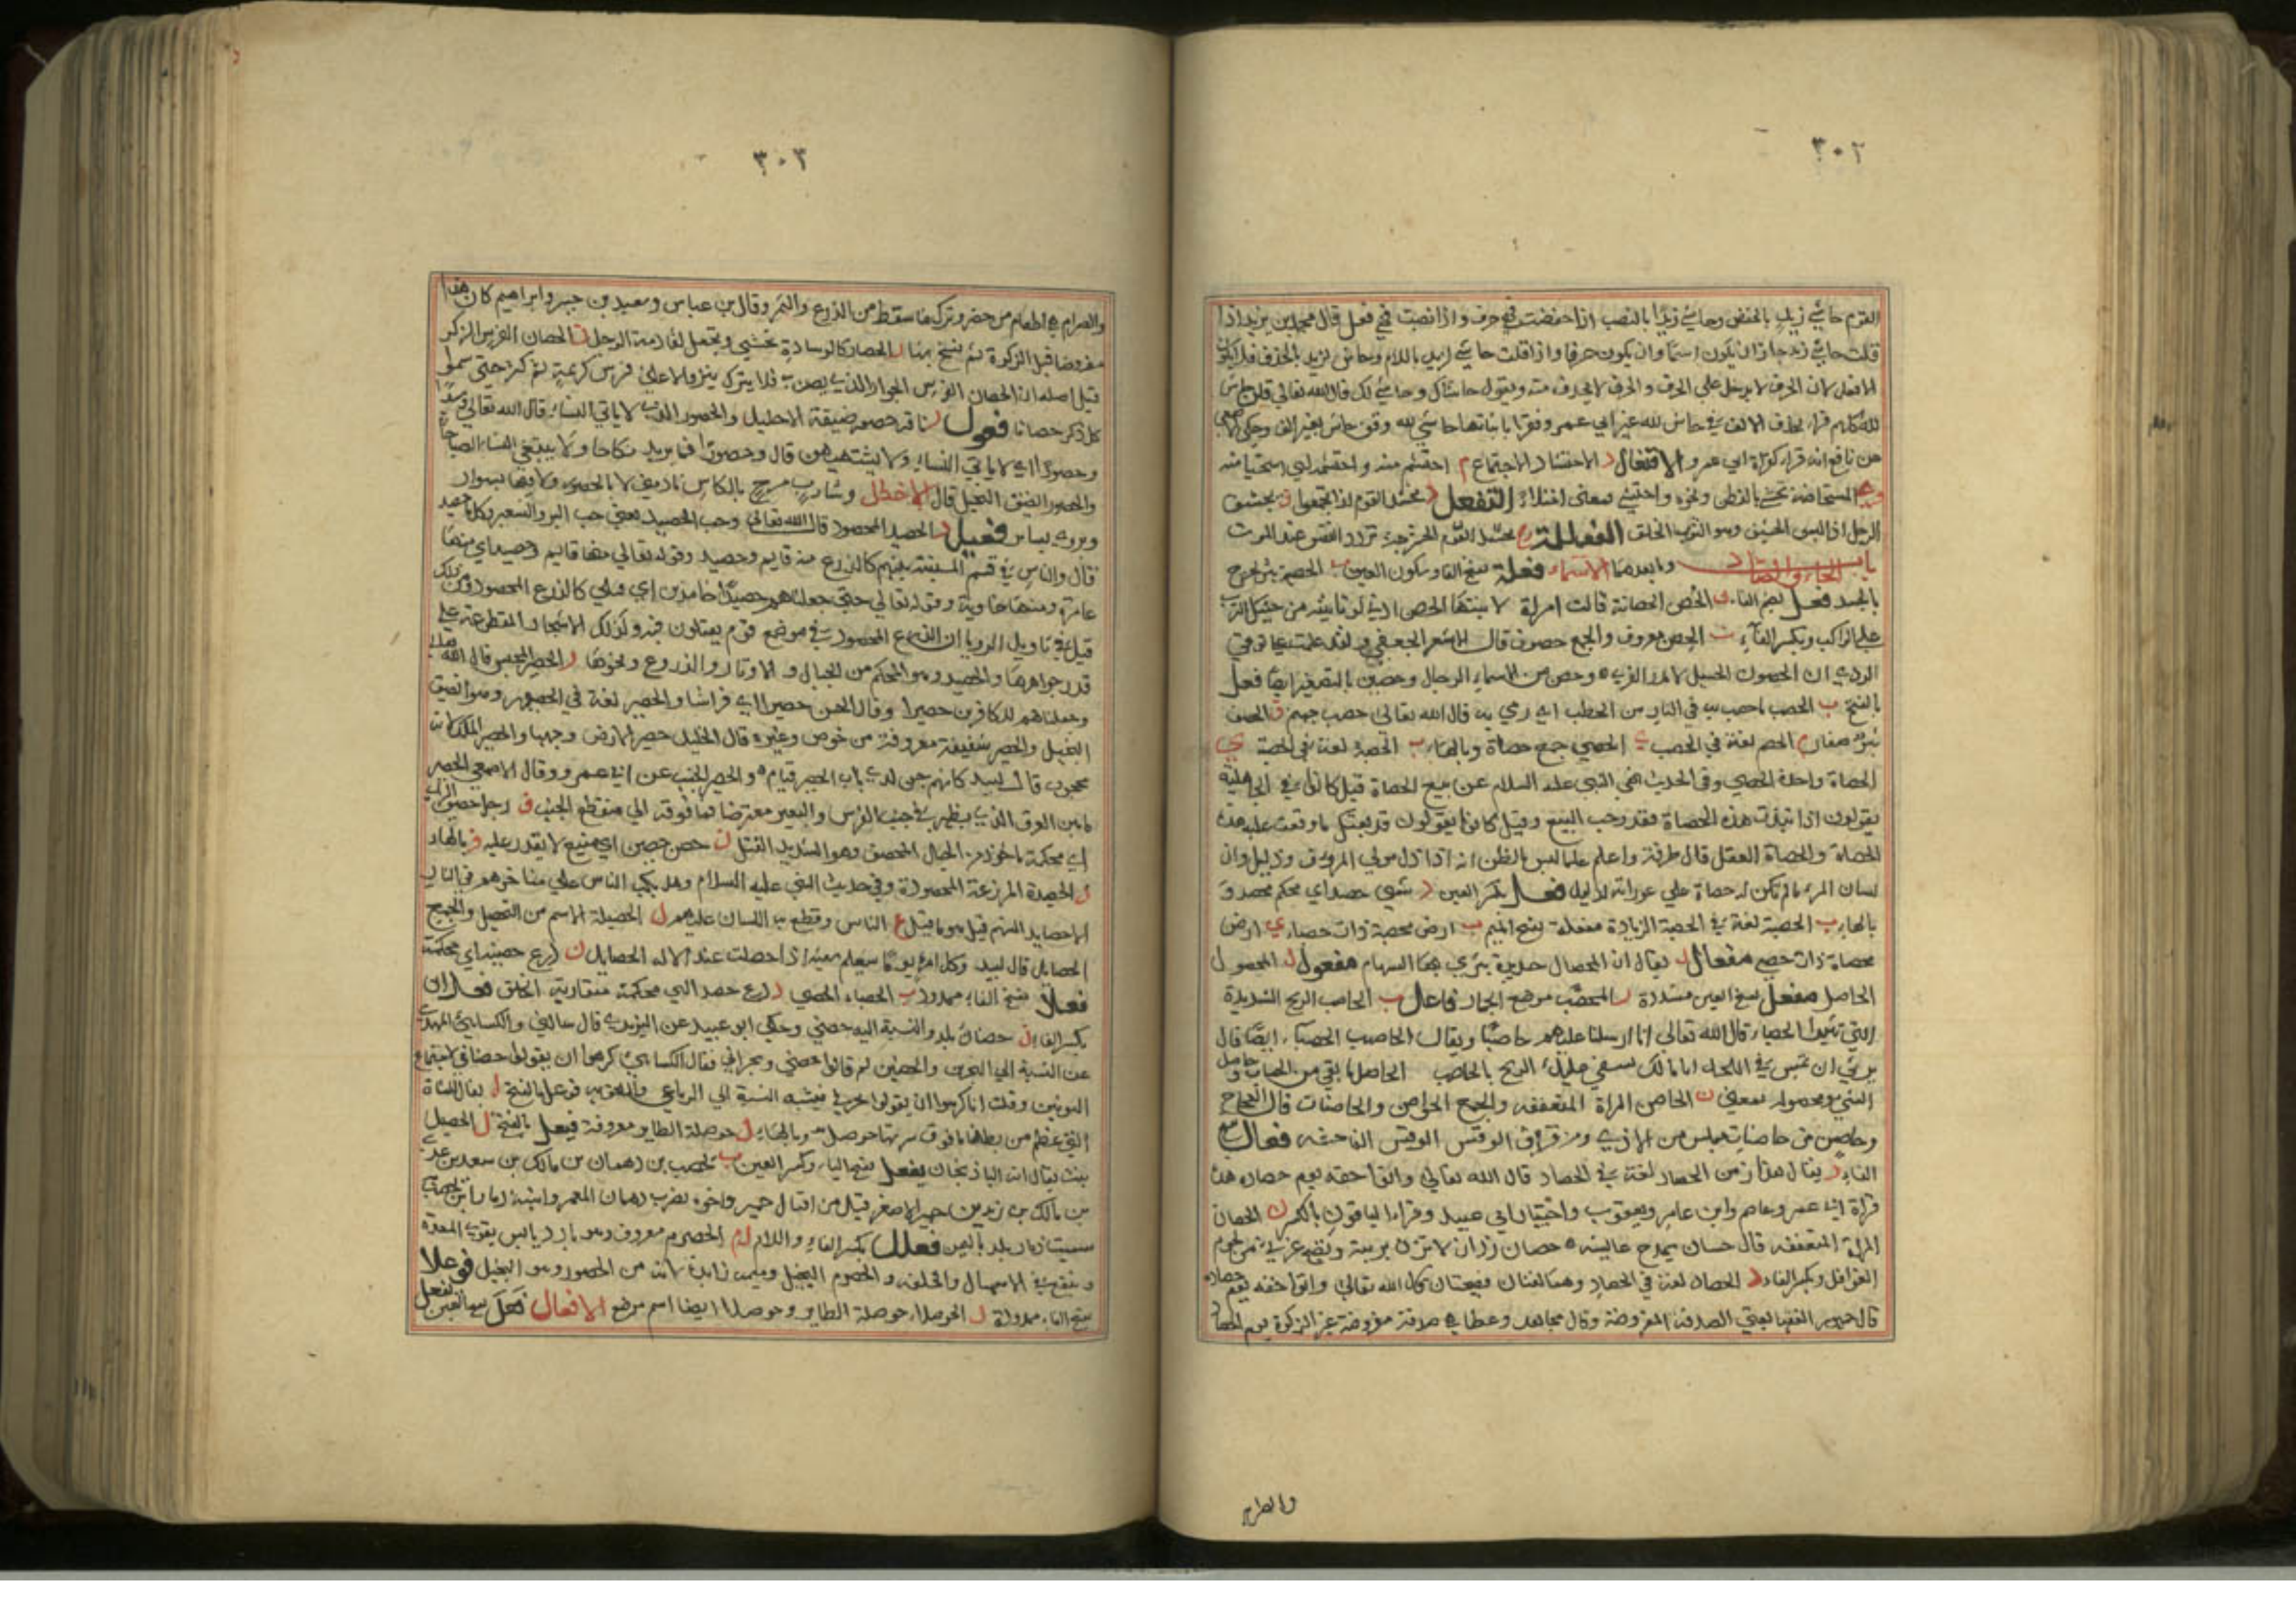 ٣٠٢
القوم حاشي زيدٍ بالخفض وحاشي زيدًا بالنصب اذا خفضت فهي حرف واذا نصبت فهي فعل قال محمد بن يزيد اذا
قلت حاشي زيد جاز ان يكون اسمًا وان يكون حرفا واذا قلت حاشي لزيد باللام وحاش لزيد بالحذف فلا يكون
الا فعل لان الحرف لا يدخل علي الحرف و الحرف لا يحذف منه ويقول حاشاك وحاشي لك قال الله تعالي قلن حاش
لله كلهم قراء بحذف الالف في حاش لله غير ابي عمرو فقرا باثباتها حاشي لله وقري حاش بغير الف وحكي الاصمعي
عن نافع انه قراء كقراة ابي عمرو الافتعال د الاحتشاد الاجتماع م احتشم منه و احتشمه اي استحيا منه
المستحاضة تحتشي بالقطن ونحوه واحتشي بمعنى امتلاء التفعل د تحشد القوم اذا تجمعوا ف تحشف
الرجل اذا لبس الحشيف وهو الثوب الخلق الفعللة ج حشرج الحشرجة تردد النفس عند الموت
باب الحاء والصاد وما بعدهما الاسماء فعلة بفتح الفاء وسكون العين ب الحصبة بثر يخرج
بالجسد فعل بضم الفاء ن الحُصن الحصانة قالت امراة لابنتها الحصن ادنى لو تأييته من حثيك الترب
علي الراكب وبكسر الفاء ن الحِصن معروف والجمع حصون قال الاسعر الجعفي ولقد علمت علي توقي
الردي ان الحصون الخيل لا مدر القري ٥ وحصن من اسماء الرجال وحصين بالتصغير ايضًا فعل
بالفتح ب الحصب ما حصب به في النار من الحطب اي رمي به قال الله تعالى حصب جهنم ف الحصف
بثر صغار م الحصم لغة في الحصب ي الحصي جمع حصاة وبالهاء ب الحصبة لغة في الحصبة ي
الحصاة واحدة الحصي وفي الحديث نهي النبي عليه السلام عن بيع الحصاة قيل كانوا في الجاهلية
يقولون اذا نبذت هذه الحصاة فقد وجب البيع وقيل كانوا يقولون قد بعتك ما وقعت عليه هذه
الحصاة والحصاة العقل قال طرفة واعلم علما ليس بالظن انه اذا ذل مولي المرء فهو ذليل وان
لسان المرء ما لم تكن له حصاة علي عوراته لدليل فعل بكسر العين د شيي حصد اي محكم محصد و
بالهاء ب الحصبة لغة في الحصبة الزيادة مفعلة بفتح الميم ب ارض محصبة ذات حصباء ي ارض
محصاة ذات حصي مفعال ل يقال ان المحصال حديدة يبري بها السهام مفعول ل المحصول
الحاصل مفعل بفتح العين مشددة ب المحصَّب موضع الجمار فاعل ب الحاصب الريح الشديدة
التي تثير الحصباء قال الله تعالى انا ارسلنا عليهم حاصبًا ويقال الحاصب الحصباء ايضًا قال
الحاصل ما بقي من الحساب وحاصل
الشي ومحصوله بمعني ن الحاصن المراة المتعففة والجمع الحواصن والحاصنات قال العجاج
وحاصن من حاصنات ملس من الاذي ومن قراف الوقس الوقس الفاحشة فعال بفتح
الفاء د يقال هذا زمن الحصاد لغة في الحصاد قال الله تعالي واتوا حقه يوم حصاده هذه
قراة ابي عمرو وعاصم وابن عامر ويعقوب واختيار ابي عبيد وقراء الباقون بالكسر ن الحصان
المراة المتعففة قال حسان يمدح عايشة ٥ حصان رزان لا تزن بريبة وتصبح غرثي من لحوم
الغوافل وبكسر الفاء د الحصاد لغة في الحصاد وهما لغتان فصيحتان قال الله تعالي واتوا حقه يوم حصاده
قال جمهور الفقها يعني الصدقة المفروضة وقال مجاهد وعطا هي صدقة مفروضة غير الزكوة يوم الحصاد
والصرام
٣٠٣
والصرام هي اطعام من حضر وترك ما سقط من الزرع والثمر وقال بن عباس وسعيد بن جبير وابراهيم كان هذا
مفروضا قبل الزكوة ثم نسخ بها ر الحصار كالوسادة تحشي ويجعل لقادمة الرحل ن الحصان الفرس الذكر
قيل اصله ان الحصان الفرس الجواد الذي يصن به فلا يترك ينزو الا علي فرس كريمة ثم كثر حتى سموا
كل ذكر حصانا فعول ر ناقة حصور ضيقة الاحليل والحصور الذي لا ياتي النساء قال الله تعالي وسيدًا
وحصورًا اي لا ياتي النساء ولا يشتهيهن قال وحصورًا فما يريد نكاحا ولا يبتغي النساء الصباحا
والحصور الضيق البخيل قال الاخطل وشارب مربح بالكاس نادمني لا بالحصور ولا فيها بسوار
ويروي بسار فعيل د الحصيد المحصود قال الله تعالى وحب الحصيد يعني حب البر والشعير وكل ما حصد
قال والناس في قسم المنية بينهم كالزرع منه قايم وحصيد وقوله تعالي منها قايم وحصيد اي منها
عامرة ومنها خاوية وقوله تعالي حتى جعلناهم حصيدًا خامدين اي قتلي كالزرع المحصود ومن ذلك
قيل في تاويل الرويا ان الزرع المحصود في موضع قوم يقتلون فيه وكذلك الاشجار المقطوعة علي
قدر جواهرها والحصيد وهو المحكم من الحبال و الاوتار والدروع ونحوها ر الحصير المحبس قال الله تعالي
وجعلنا جهنم للكافرين حصيرا وقال الحسن حصيرا اي فراشا والحصير لغة في الحصور وهو الضيق
البخيل والحصير سفيفة معروفة من خوص وغيره قال الخليل حصير الارض وجهها والحصير الملك لانه
محجوب قال لبيد كانهم جن لدي باب الحصير قيام ٥ والحصير الجنب عن ابي عمرو وقال الاصمعي الحصير
ما بين العرق الذي يظهر في جنب الفرس والبعير معترضا فما فوقه الي منقطع الجنب ف رجل حصيف الراي
اي محكمه ماخوذ من الحبل المحصف وهو الشديد الفتل ن حصن حصين اي منيع لا يقدر عليه و بالهاء
د الحصيدة المزرعة المحصودة وفي حديث النبي عليه السلام وهل يكب الناس علي مناخرهم في النار
الا حصايد السنتهم قيل هو ما قيل في الناس وقطع به اللسان عليهم ل الحصيلة الاسم من التحصيل والجمع
الحصايل قال لبيد وكل امرء يومًا سيعلم سعيه اذا حصلت عند الاله الحصايل ن درع حصينة اي محكمة
فعلاء بفتح الفاء ممدود ب الحصباء الحصي د درع حصداء اي محكمة متقاربة الحلق فعلان
بكسر الفاء ن حصنان بلد والنسبة اليه حصني وحكي ابو عبيد عن اليزيدي قال سالني والكسائي المهدي
عن النسبة الي البحرين والحصنين لم قالوا حصني وبحراني فقال الكسائي كرهوا ان يقولوا حصناني لاجتماع
النونين وقلت انا كرهوا ان يقولوا بحري فيشبه النسبة الي البحر الرباعي والملحق به فوعل بالفتح ل يقال للشاة
التي عظم من بطنها ما فوق سرتها حوصل وبالهاء ل حوصلة الطاير معروفة فيعل بالفتح ل الحيصل
نبت يقال انه الباذنجان يفعل بفتح الياء وكسر العين ب يحصب بن دهمان بن مالك بن سعد بن عدي
بن مالك بن زيد بن حمير الاصغر قيل من اقيال حمير
سميت ذمار بلد باليمن فعلل بكسر الفاء واللام م الحصرم معروف وهو بارد يابس يقوي المعدة
وينفع في الاسهال والحلفة و الحصرم البخيل وميمه زايدة لانه من الحصور وهو البخيل فوعلاء
بفتح الفاء ممدودة ل الحوصلاء حوصلة الطاير وحوصلاء ايضا اسم موضع الافعال فَعَلَ بفتح العين يفعل